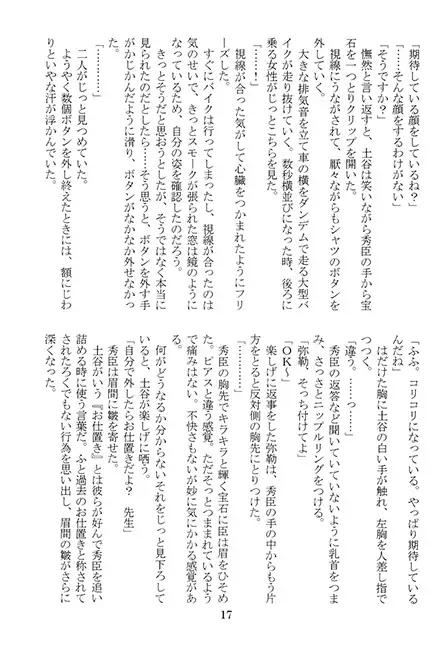 「期待している顔をしているね?」
「……そんな顔をするわけがない」
「そうですか?」
憮然と言い返すと、土谷は笑いながら秀臣の手から宝
石を一つとりクリップを開いた。
視線にうながされて、厭々ながらもシャツのボタンを
外していく。
大きな排気音を立て車の横をタンデムで走る大型バ
イクが走り抜けていく。数秒横並びになった時、後ろに
乗る女性がじっとこちらを見た。
「……!」
視線が合った気がして心臓をつかまれたようにフリ
ーズした。
すぐにバイクは行ってしまったし、視線が合ったのは
気のせいで、きっとスモークが張られた窓は鏡のように
なっているため、自分の姿を確認したのだろう。
きっとそうだと思おうとしたが、そうではなく本当に
見られたのだとしたら……そう思うと、ボタンを外す手
がかじかんだように滑り、ボタンがなかなか外せなかっ
た。
「…………」
二人がじっと見つめていた。
ようやく数個ボタンを外し終えたときには、額にじわ
りといやな汗が浮かんでいた。
「ふふ。コリコリになっている。やっぱり期待している
んだね」
はだけた胸に土谷の白い手が触れ、左胸を人差し指で
つつく。
「違う。……」
秀臣の返答など聞いていていないように乳首をつま
み、さっさとニップルリングをつける。
「弥勒、そっち付けてよ」
「OK〜」
楽しげに返事をした弥勒は、秀臣の手の中からもう片
方をとると反対側の胸先にとりつけた。
秀臣の胸先でキラキラと輝く宝石に臣は眉をひそめ
た。ピアスと違う感覚。ただそっとつままれているよう
で痛みはない。不快さもないが妙に気にかかる感覚があ
る。
何がどうなるか分からないそれをじっと見下ろして
いると、土谷が楽しげに哂う。
「自分で外したらお仕置きだよ? 先生」
秀臣は眉間に皺を寄せた。
土谷がいう『お仕置き』とは彼らが好んで秀臣を追い
詰める時に使う言葉だ。ふと過去のお仕置きと称されて
されたろくでもない行為を思い出し、眉間の皺がさらに
深くなった。
17